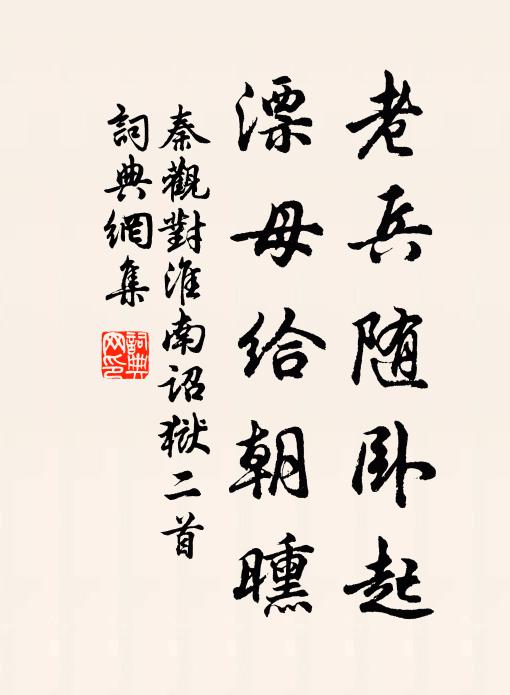 老兵随卧起
漂母给朝曛
秦觀對淮南詔獄二首
詞典網集
詞典网印